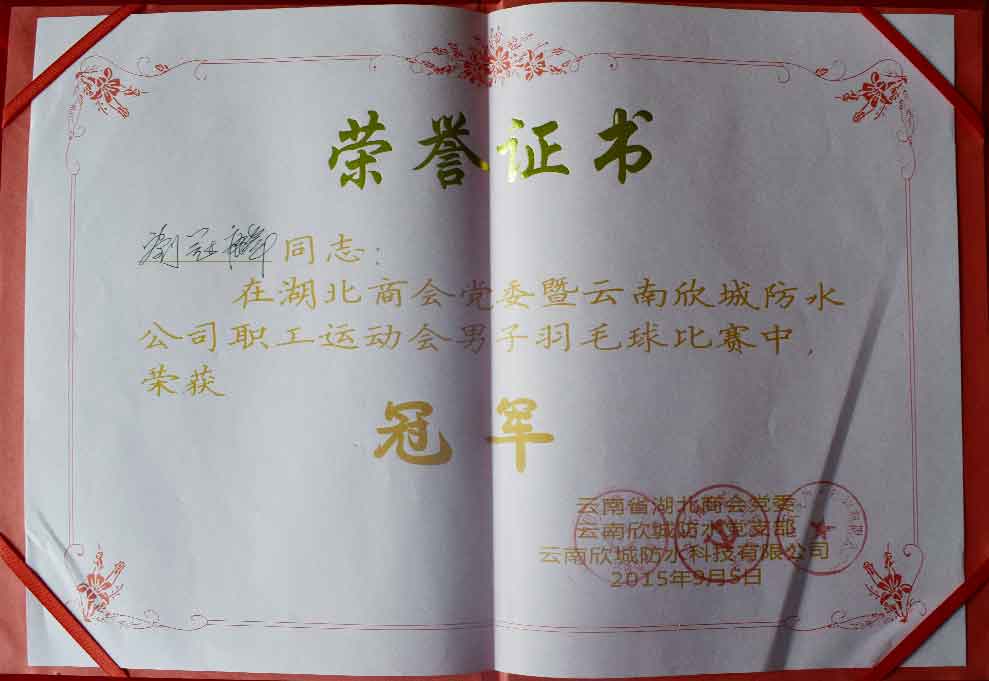 荣誉证书
同志：
在湖北商会党委暨云南欣城防水
公司职工运动会男子羽毛球比赛中，
荣获
冠军
云南省湖北商会党委
云南欣城防水党支部
云南欣城防水科技有限公司
2015年9月5日